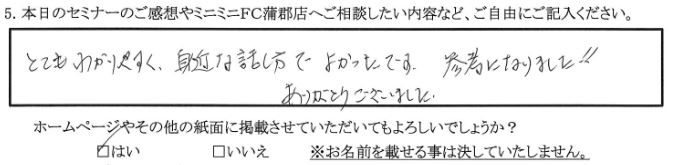 5. 本日のセミナーのご感想やミニミニFC蒲郡店へご相談したい内容など、ご自由にご記入ください。
とてもわかりやすく、身近な話し方でよかったです。参考になりました!!
ありがとうございました.
ホームページやその他の紙面に掲載させていただいてもよろしいでしょうか?
□はい □いいえ ※お名前を載せる事は決していたしません。